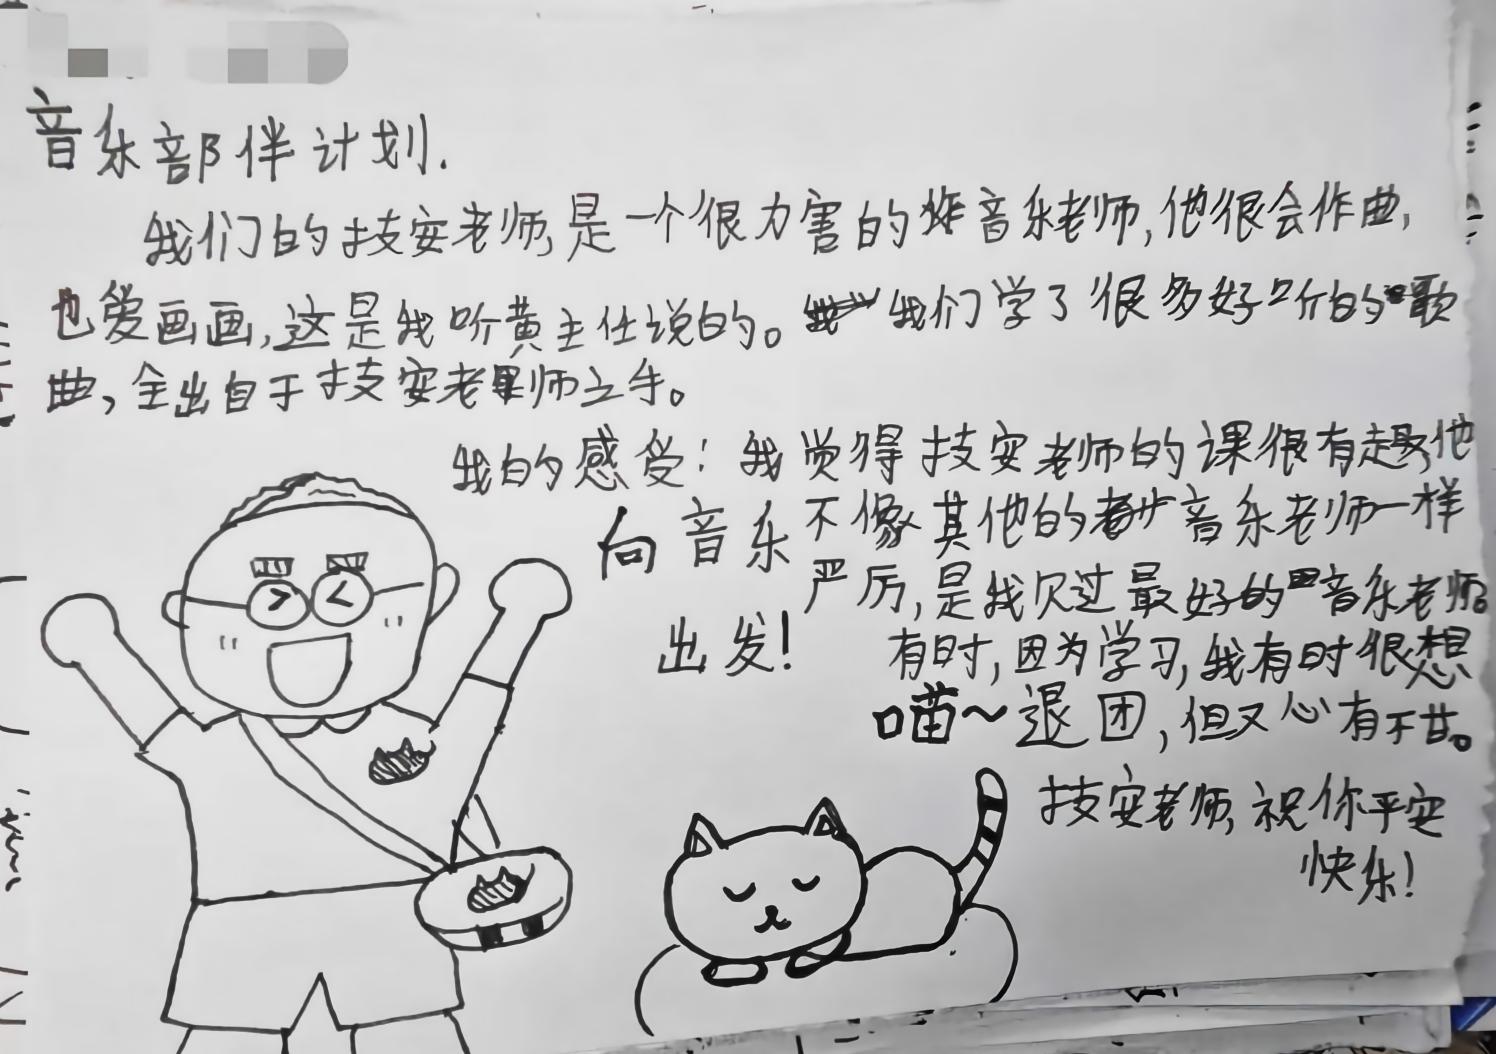 音乐部伴计划.
我们的技安老师,是一个很力害的音乐老师,他很会作曲,
也爱画画,这是我听黄主任说的。我们学了很多好听的歌
曲,全出自于技安老师之手。
我的感受:我觉得技安老师的课很有趣,他
不像其他的音乐老师一样
严厉,是我欠过最好的音乐老师。
有时,因为学习,我有时很想
退团,但又心有不甘。
向音乐
出发!
喵~
技安老师,祝你平安
快乐!